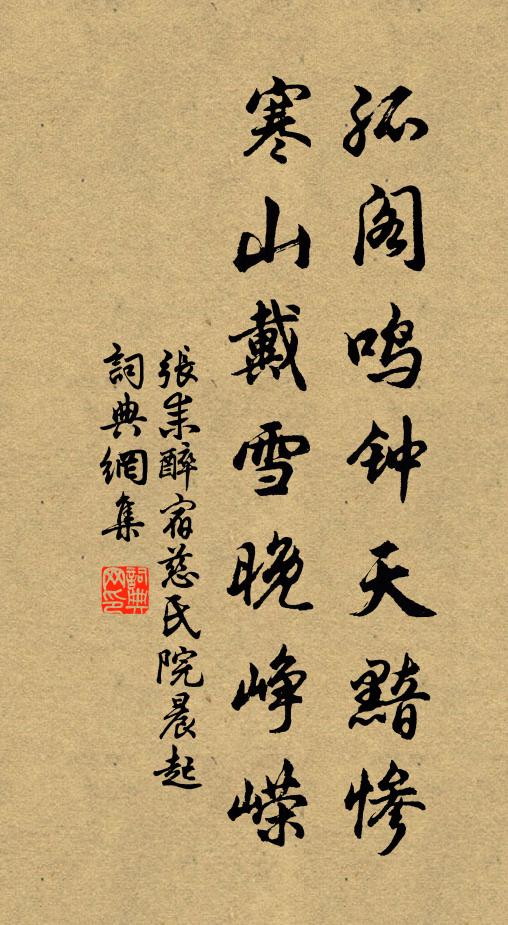 孤阁鸣钟天黯惨
寒山戴雪晚峥嵘
張耒醉宿慈氏院晨起
詞典網集
詞典网印